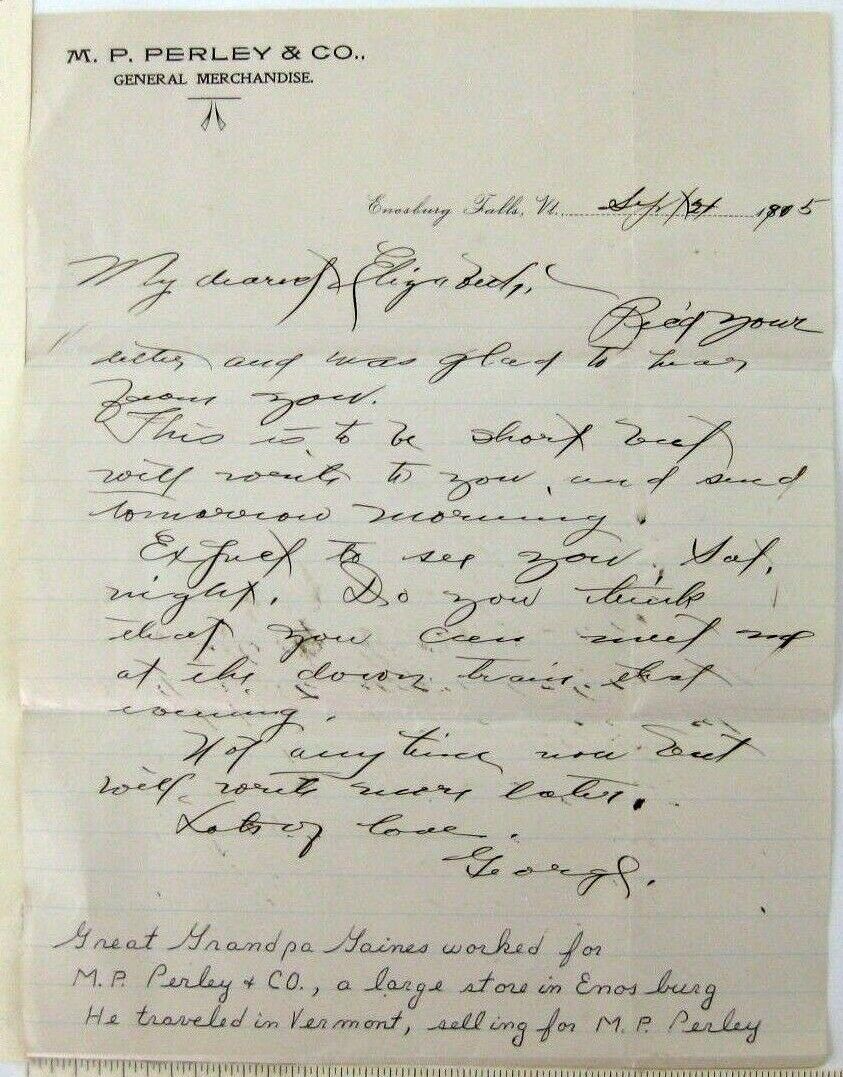 M. P. PERLEY & CO.,
GENERAL MERCHANDISE.
Enosburg Falls, Vt. Sept 21 1905
My dearest Elizabeth,
Rec'd your
letter and was glad to hear
from you.
This is to be short but
will write to you, and send
tomorrow morning.
Expect to see you, Sat,
night. Do you think
that you can meet me
at the down train that
evening.
Not any time now but
will write more later.
Lots of love.
George.
Great Grandpa Gaines worked for
M. P. Perley + CO., a large store in Enosburg
He traveled in Vermont, selling for M. P. Perley